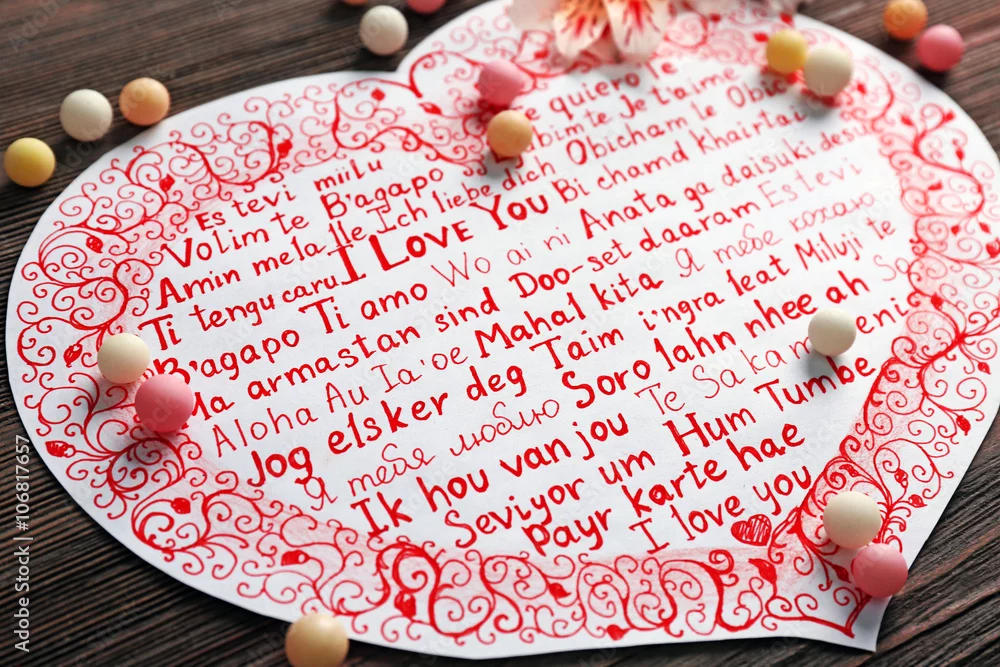 Es tevi miilu
Te quiero Te
Volim te B'agapo
Je t'aime
Amin mela lle Ich liebe dich Obicham te Obic
Ti tengu caru I LOVE YOU Bi chamd Khairtai
B'agapo Ti amo Wo ai ni Anata ga daisuki desu
Ma armastan sind Doo-set daaram Es tevi
Aloha Au Ia'oe Mahal kita Я тебе кохаю
Jog elsker deg Taim i'ngra leat Miluji te
Я тебя люблю Soro lahn nhee ah
Ik hou van jou Te Sakam
Seviyor um Hum Tumbe
payr karte hae
I love you
Adobe Stock
Adobe Stock | #106817657